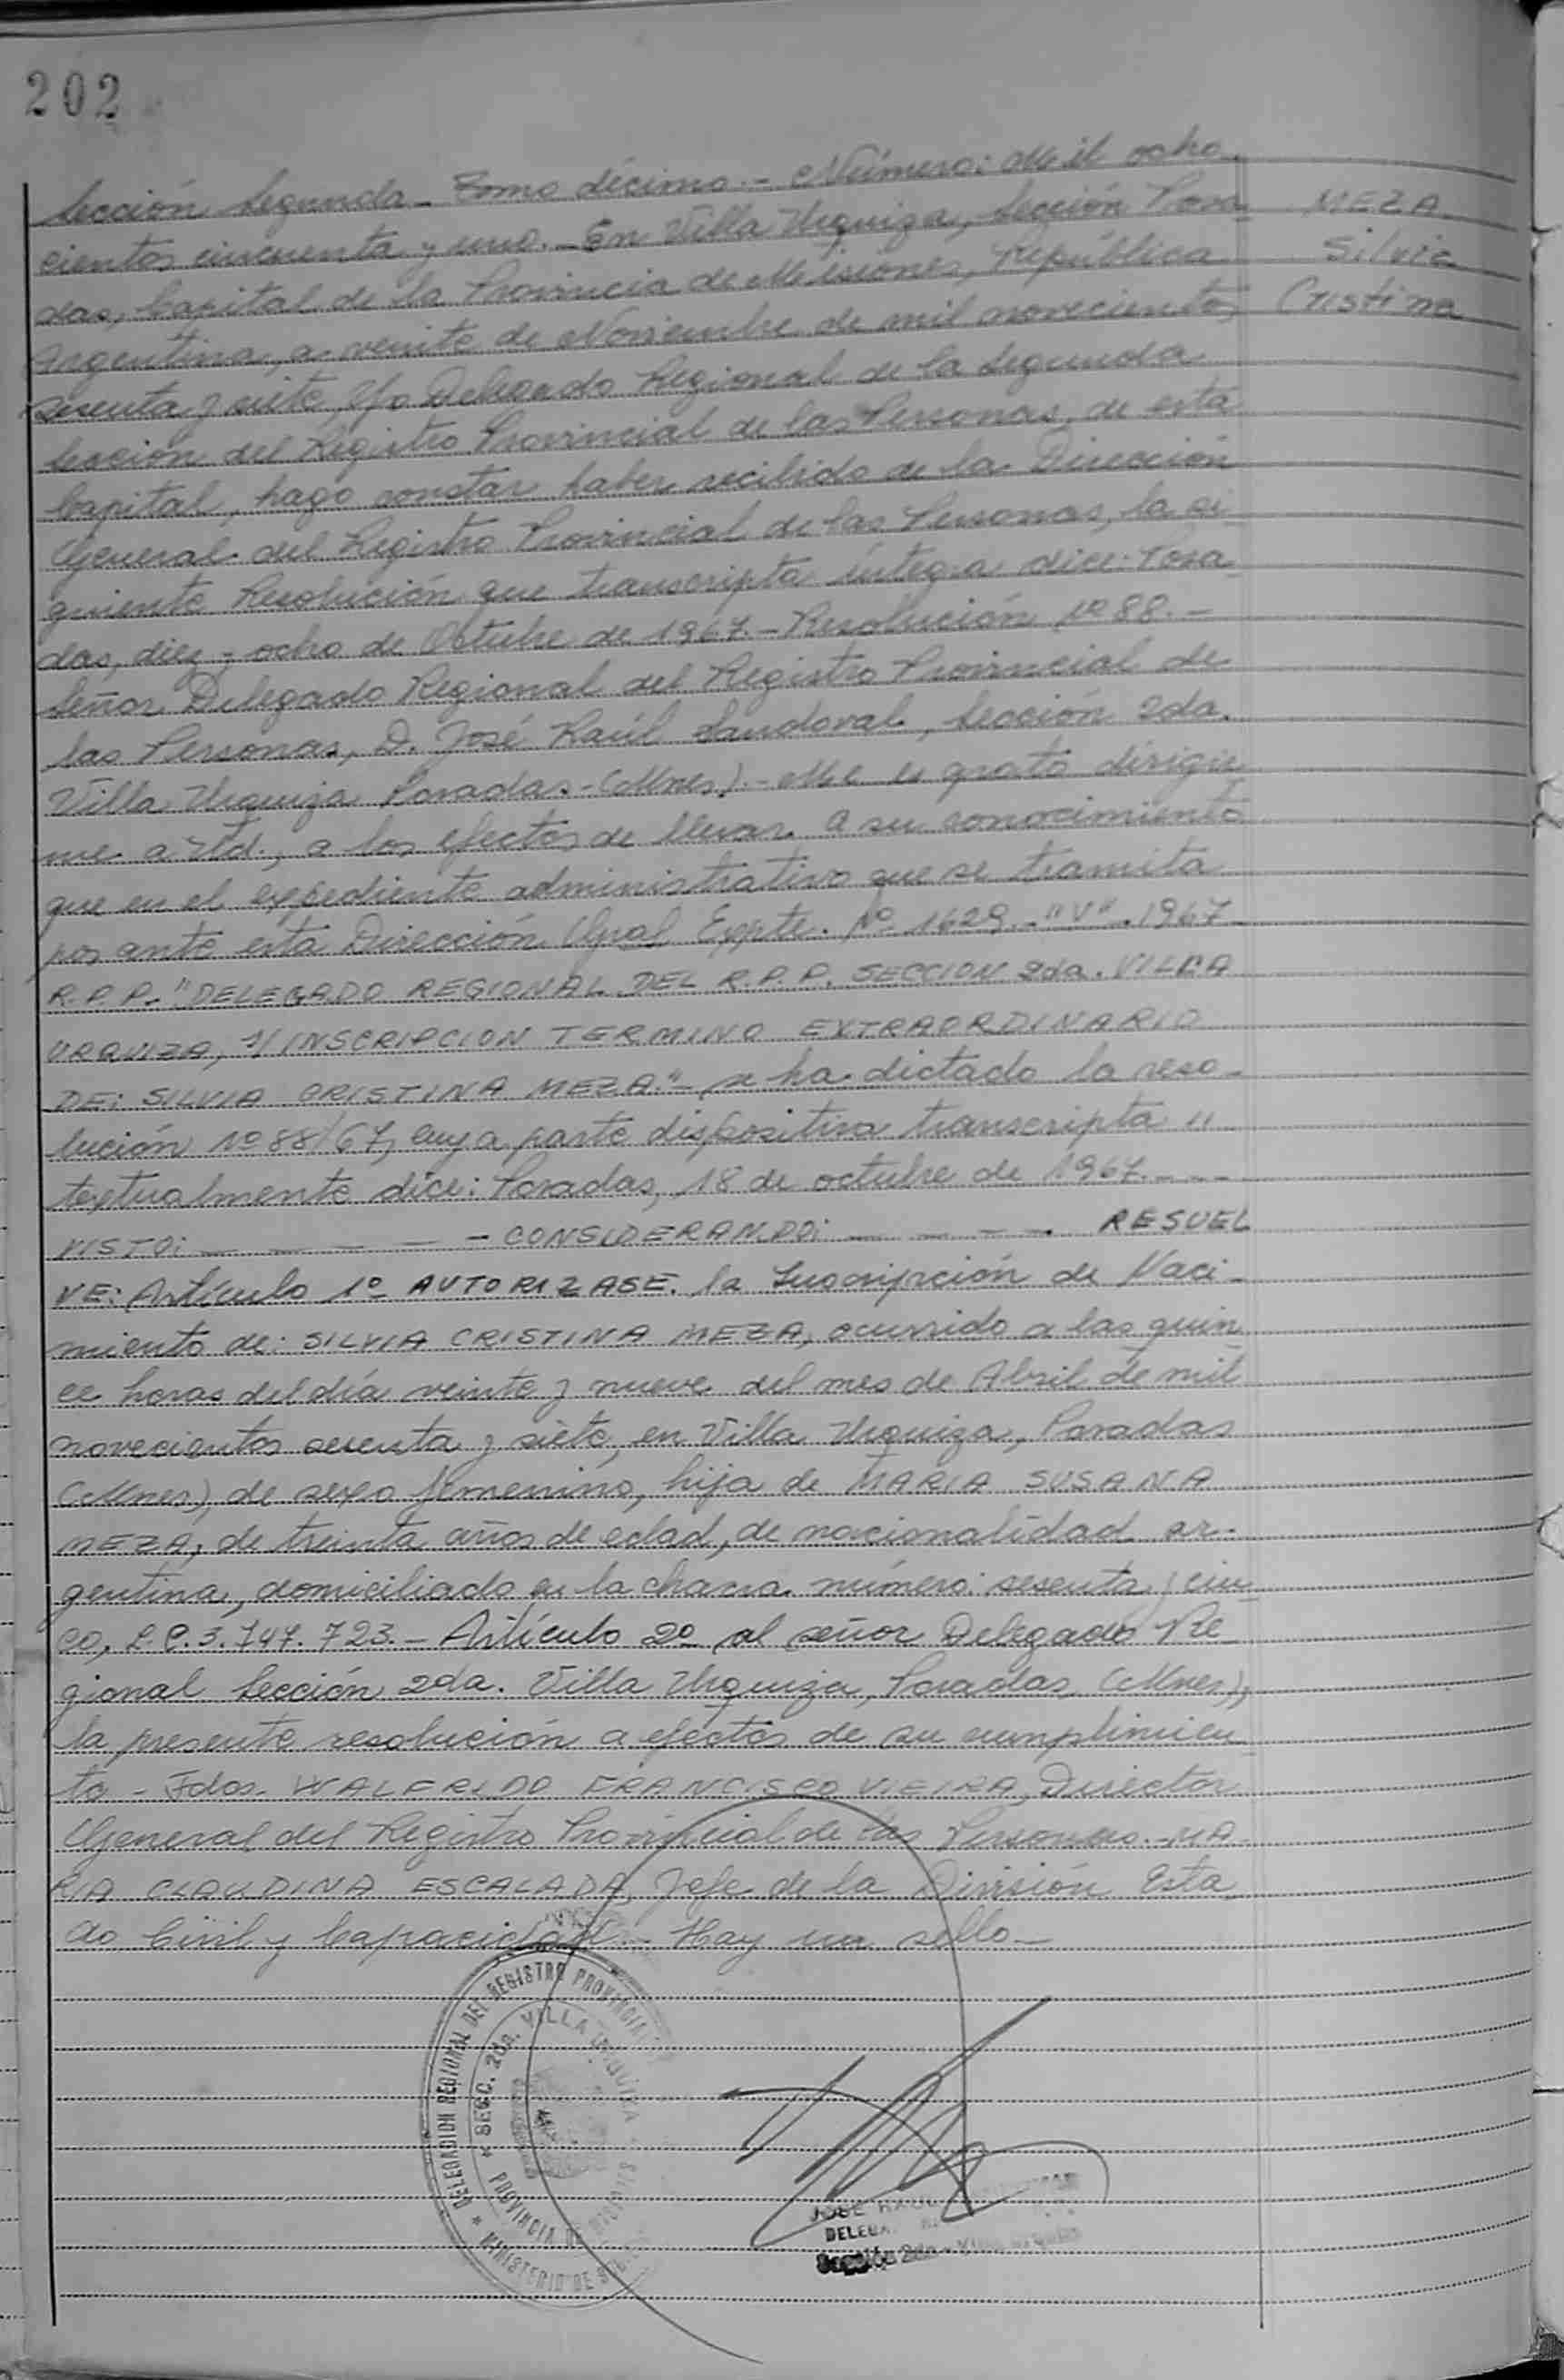 202
Sección Segunda - Tomo décimo. - Número: Mil ocho
cientos cincuenta y uno. - En Villa Urquiza, Sección Posa
das, Capital de la Provincia de Misiones, República
Argentina, a veinte de Noviembre de mil novecientos
sesenta y siete, Yo Delegado Regional de la Segunda
Sección del Registro Provincial de las Personas, de esta
Capital, hago constar haber recibido de la Dirección
General del Registro Provincial de las Personas, la si
guiente Resolución que transcripta íntegra dice: Posa
das, diez y ocho de Octubre de 1967. - Resolución Nº 88. -
Señor Delegado Regional del Registro Provincial de
las Personas, D. José Raúl Sandoval, Sección 2da.
Villa Urquiza Posadas - (Mnes). - Me es grato dirigir
me a Ud., a los efectos de llevar a su conocimiento
que en el expediente administrativo que se tramita
por ante esta Dirección Gral Expte. Nº 1629 - "V" - 1967
R.P.P. "DELEGADO REGIONAL DEL R.P.P. SECCION 2da. VILLA
URQUIZA, s/ INSCRIPCION TERMINO EXTRAORDINARIO
DE: SILVIA CRISTINA MEZA." - se ha dictado la reso-
lución Nº 88/67, cuya parte dispositiva transcripta "
textualmente dice: Posadas, 18 de octubre de 1967. - - -
VISTO: - - - - - CONSIDERANDO: - - - - RESUEL
VE: Artículo 1º AUTORIZASE. la Inscripción de Naci-
miento de: SILVIA CRISTINA MEZA, ocurrido a las quin
ce horas del día veinte y nueve del mes de Abril de mil
novecientos sesenta y siete, en Villa Urquiza, Posadas
(Mnes), de sexo femenino, hija de MARIA SUSANA
MEZA, de treinta años de edad, de nacionalidad ar-
gentina, domiciliado en la chacra número: sesenta y cin-
co, L.C. 3.747.723. - Artículo 2º al señor Delegado Re
gional Sección 2da. Villa Urquiza, Posadas, (Mnes),
la presente resolución a efectos de su cumplimien
to - Fdos. WALFRIDO FRANCISCO VIEIRA, Director
General del Registro Provincial de las Personas. - MA
RIA CLAUDINA ESCALADA, Jefe de la División Esta
do Civil y Capacidad. - Hay un sello -
MEZA
Silvia
Cristina
DELEGACION REGIONAL DEL REGISTRO PROVINCIAL
* SECC. 2da. VILLA URQUIZA
PROVINCIA DE MISIONES
* MINISTERIO DE
JOSE RAUL
DELEGA
Sección 2da - Villa Urquiza